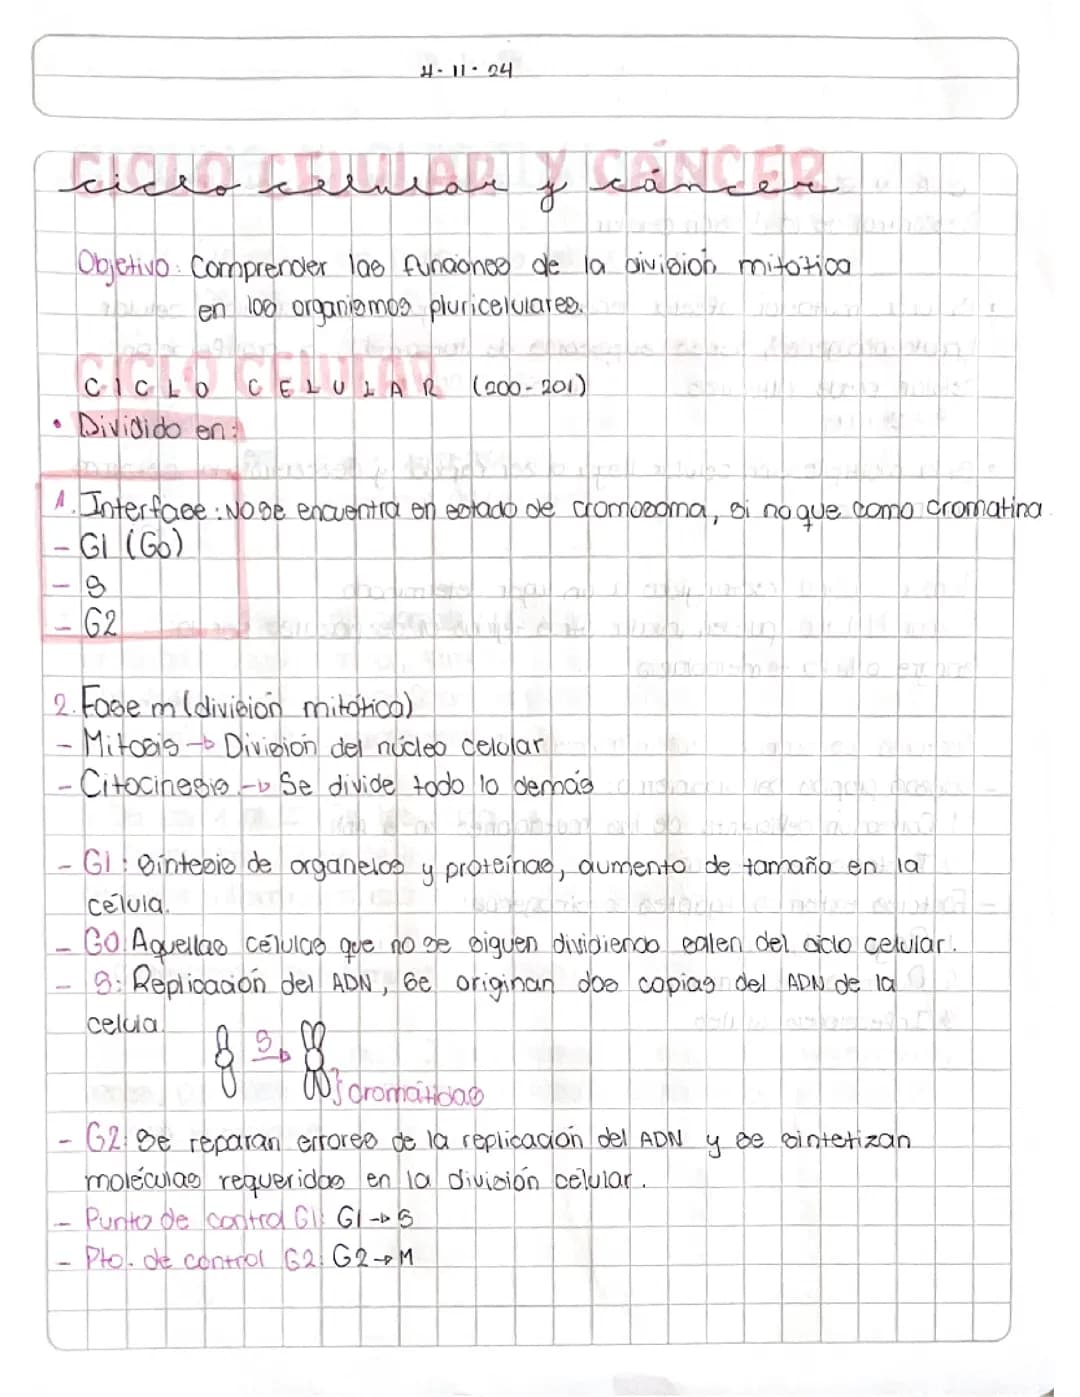 4-11-24
CICLO CELULAR Y CÁNCER
ciclo celular y cáncer
Objetivo: Comprender las funciones de la división mitótica
en los organismos pluricelulares.
CICLO CELULAR
CICLO CELULAR (200-201)
• Dividido en:
1. Interfase: No se encuentra en estado de cromosoma, si no que como cromatina
- G1 (G0)
- S
- G2
2. Fase m (división mitótica)
- Mitosis → División del núcleo celular
- Citocinesis → Se divide todo lo demás
- G1: Síntesis de organelos y proteínas, aumento de tamaño en la
célula.
- G0: Aquellas células que no se siguen dividiendo salen del ciclo celular.
- S: Replicación del ADN, se originan dos copias del ADN de la
celula.
S →
} cromátidas
- G2: Se reparan errores de la replicación del ADN y se sintetizan
moléculas requeridas en la división celular.
- Punto de control G1: G1 → S
- Pto. de control G2: G2 → M